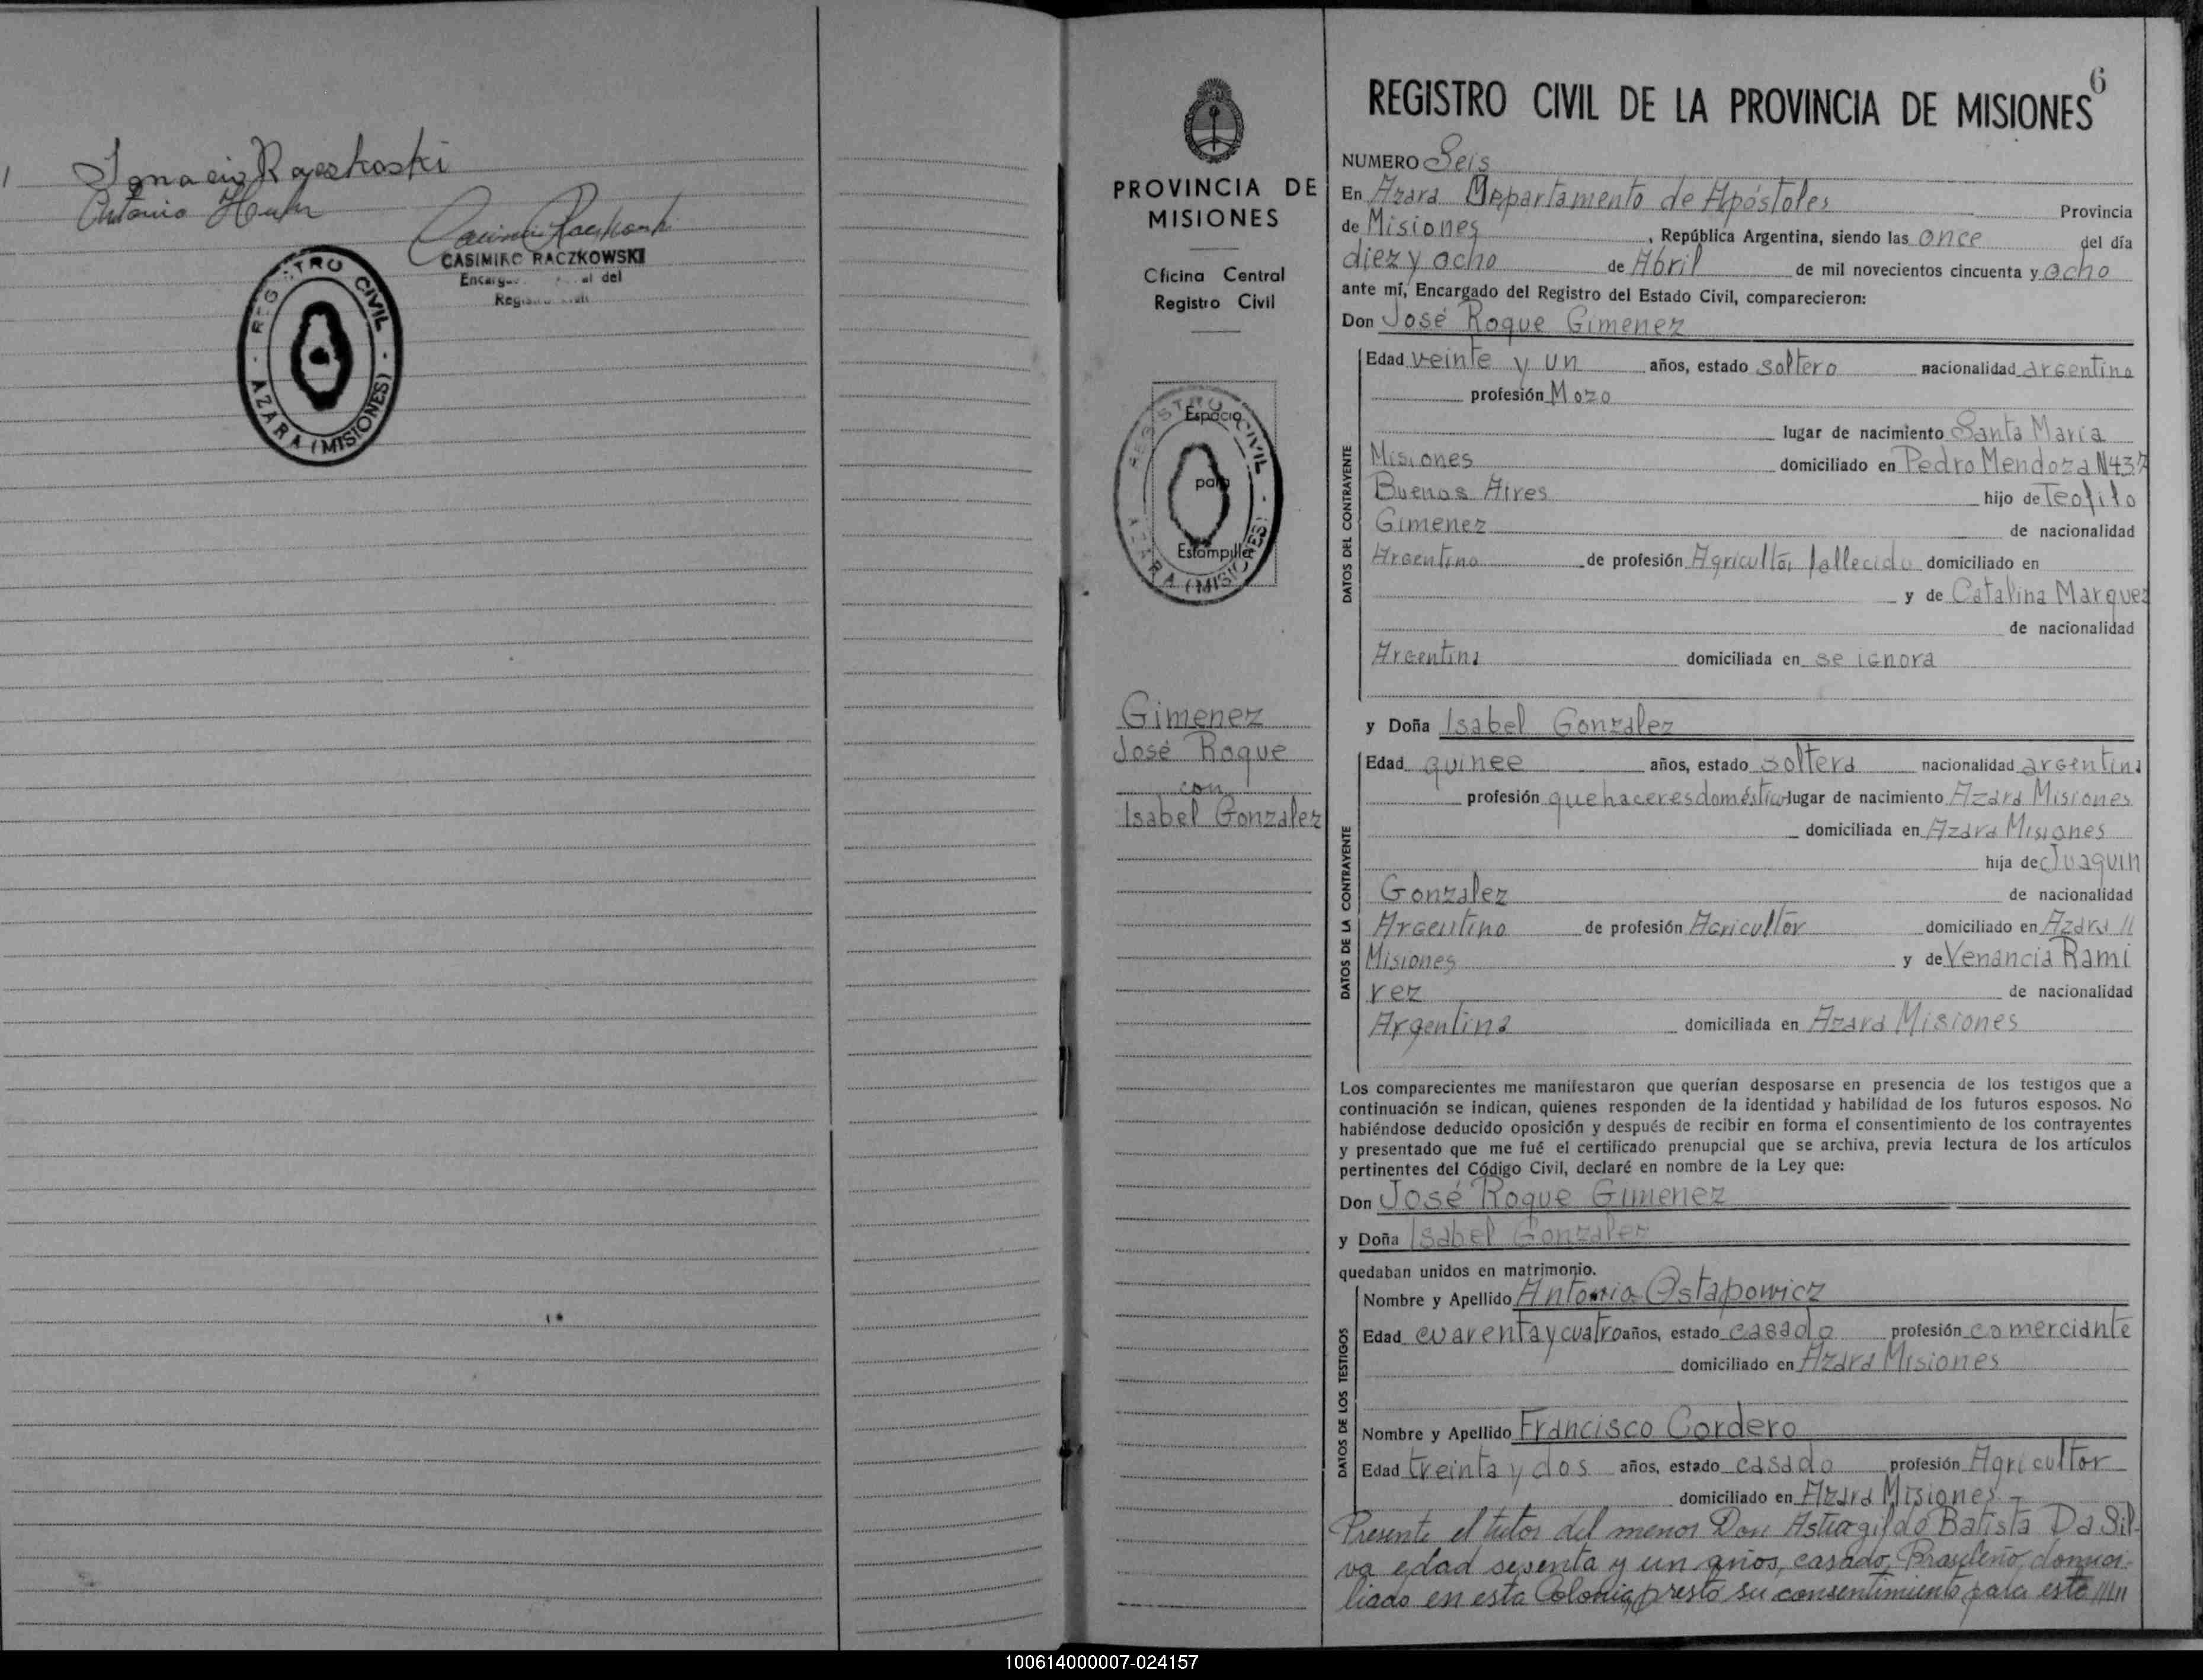 Ignacio Raczkoski
Antonio Hum
CASIMIRO RACZKOWSKI
del
REGISTRO CIVIL - AZARA (MISIONES) -
PROVINCIA DE
MISIONES
Oficina Central
Registro Civil
REGISTRO CIVIL - AZARA (MISIONES) -
Espacio
para
Estampilla
Gimenez
José Roque
con
Isabel Gonzalez
6
REGISTRO CIVIL DE LA PROVINCIA DE MISIONES
NUMERO Seis
En Azara Departamento de Apóstoles Provincia
de Misiones, República Argentina, siendo las once del día
diez y ocho de Abril de mil novecientos cincuenta y ocho
ante mí, Encargado del Registro del Estado Civil, comparecieron:
Don José Roque Gimenez
DATOS DEL CONTRAYENTE
Edad veinte y un años, estado soltero nacionalidad argentino
profesión Mozo
lugar de nacimiento Santa María
Misiones domiciliado en Pedro Mendoza N437
Buenos Aires hijo de Teofilo
Gimenez de nacionalidad
Argentino de profesión Agricultor fallecido domiciliado en
y de Catalina Marquez
de nacionalidad
Argentina domiciliada en se ignora
y Doña Isabel Gonzalez
DATOS DE LA CONTRAYENTE
Edad quinee años, estado soltera nacionalidad argentina
profesión quehaceres doméstico lugar de nacimiento Azara Misiones
domiciliada en Azara Misiones
hija de Juaquin
Gonzalez de nacionalidad
Argentino de profesión Agricultor domiciliado en Azara //
Misiones y de Venancia Rami
rez de nacionalidad
Argentina domiciliada en Azara Misiones
Los comparecientes me manifestaron que querían desposarse en presencia de los testigos que a
continuación se indican, quienes responden de la identidad y habilidad de los futuros esposos. No
habiéndose deducido oposición y después de recibir en forma el consentimiento de los contrayentes
y presentado que me fué el certificado prenupcial que se archiva, previa lectura de los artículos
pertinentes del Código Civil, declaré en nombre de la Ley que:
Don José Roque Gimenez
y Doña Isabel Gonzalez
quedaban unidos en matrimonio.
DATOS DE LOS TESTIGOS
Nombre y Apellido Antonio Ostapowicz
Edad cuarenta y cuatro años, estado casado profesión comerciante
domiciliado en Azara Misiones
Nombre y Apellido Francisco Cordero
Edad treinta y dos años, estado casado profesión Agricultor
domiciliado en Azara Misiones -
Presente el tutor del menor Don Astrogildo Batista Da Sil-
va edad sesenta y un años, casado, Brasileño, domici-
liado en esta Colonia, prestó su consentimiento para este /////
100614000007-024157